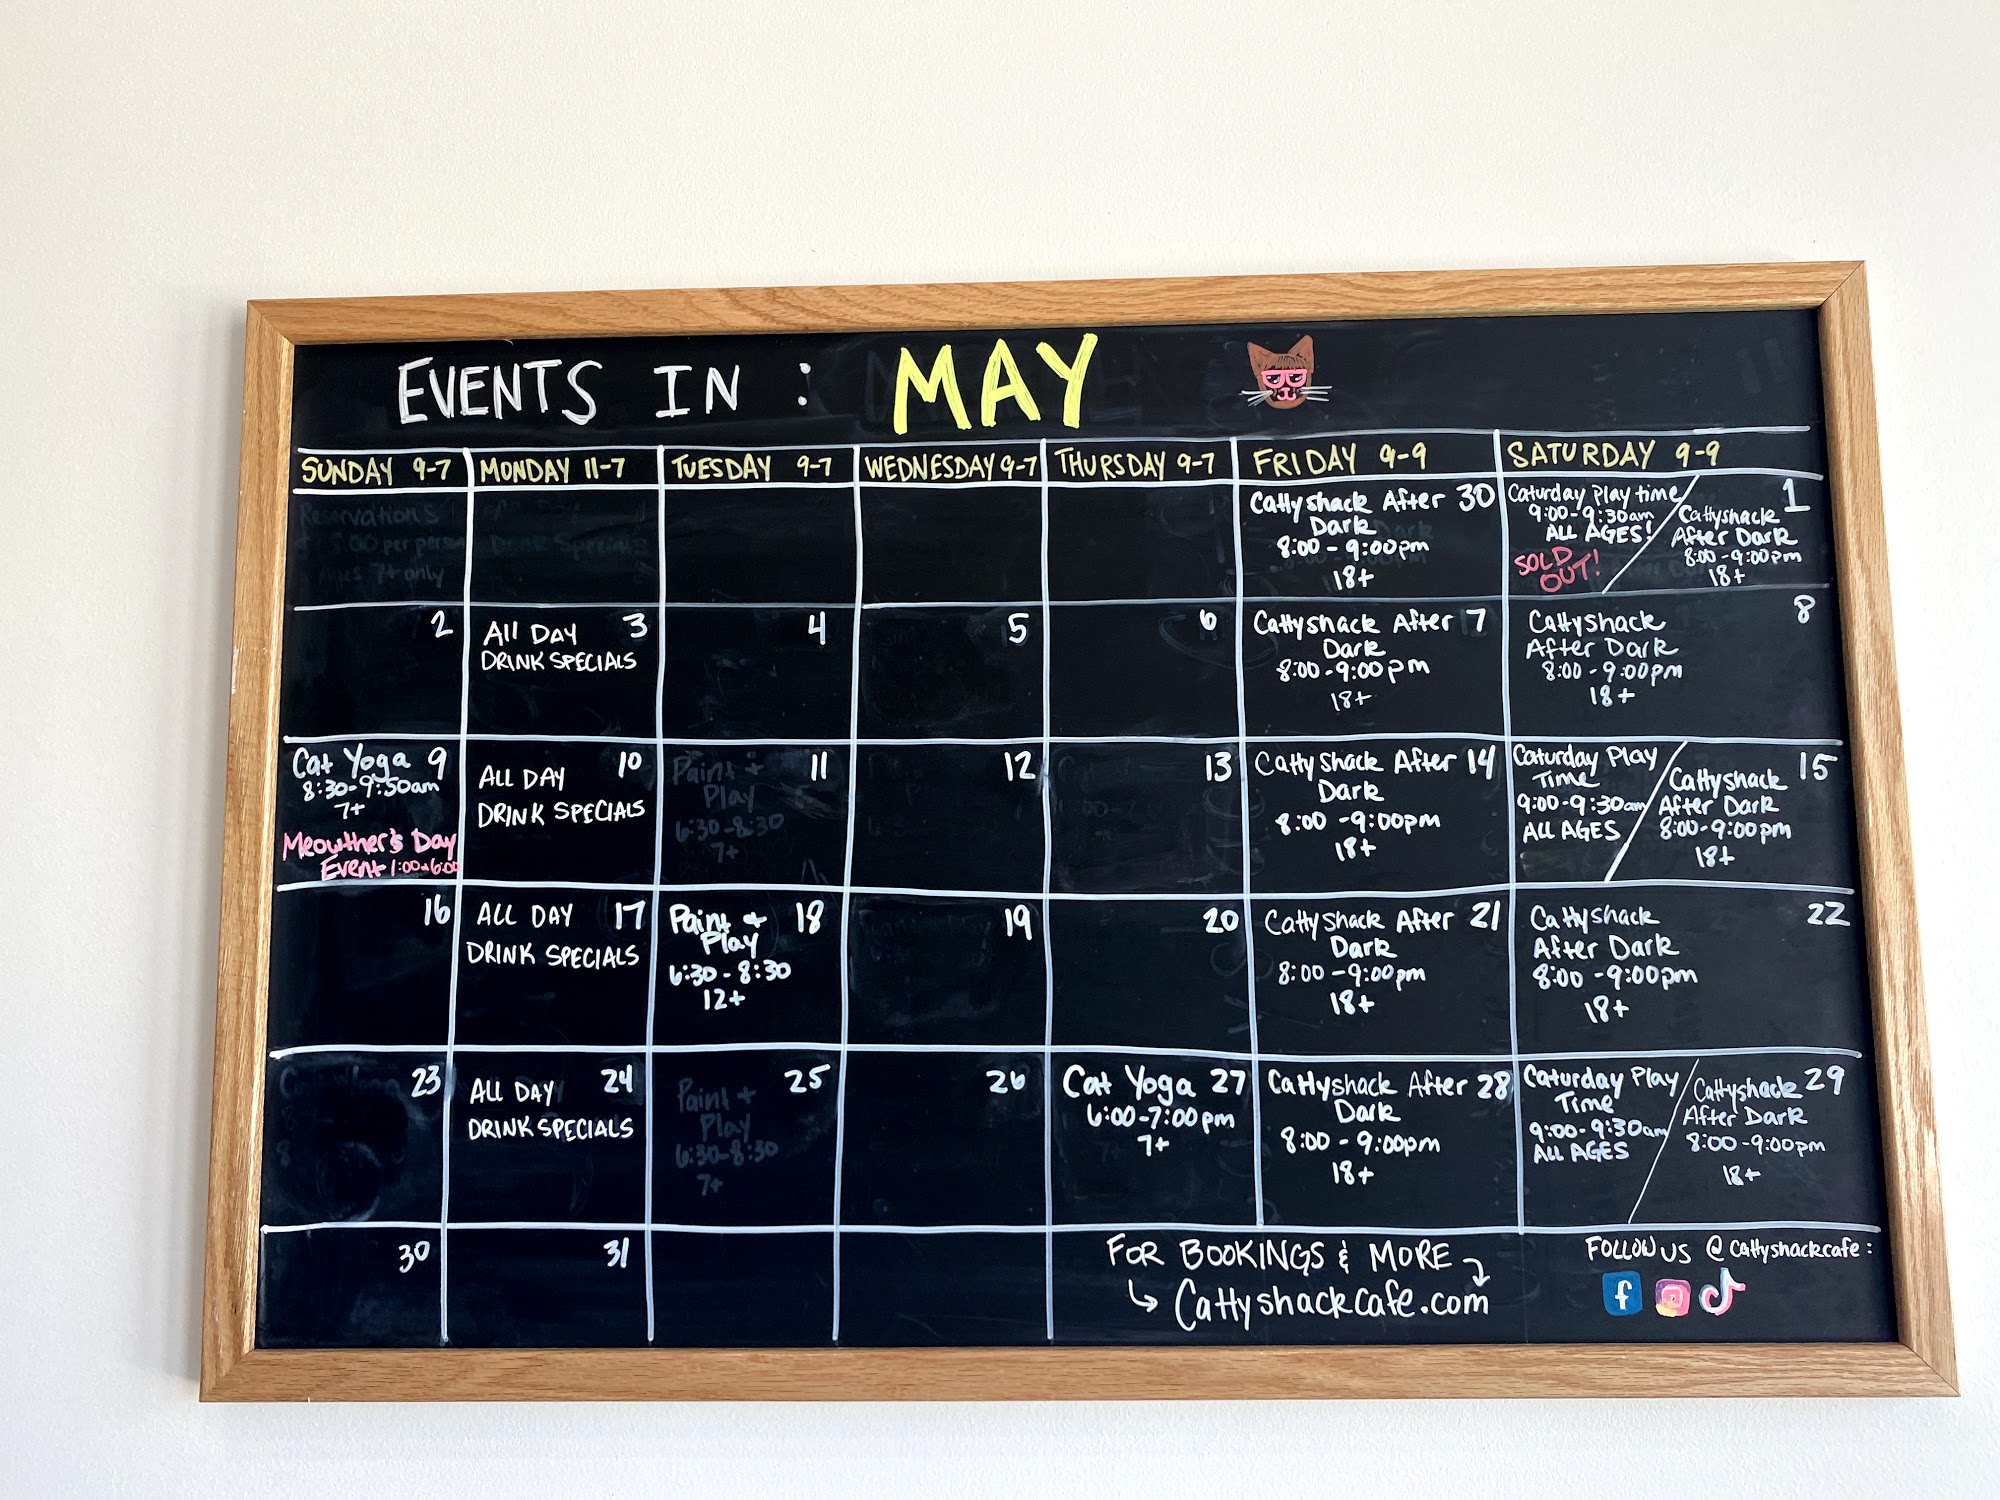 EVENTS IN : MAY
SUNDAY 9-7
MONDAY 11-7
TUESDAY 9-7
WEDNESDAY 9-7
THURSDAY 9-7
FRIDAY 9-9
SATURDAY 9-9
Reservations
8.00 per person
Ages 7+ only
Drink Specials
Cattyshack After 30
Dark
8:00-9:00pm
18+
Caturday Play time
9:00-9:30am
ALL AGES!
SOLD
OUT!
1
Cattyshack
After Dark
8:00-9:00pm
18+
2
All DAY 3
DRINK SPECIALS
4
5
6
Cattyshack After 7
Dark
8:00-9:00pm
18+
Cattyshack 8
After Dark
8:00-9:00pm
18+
Cat Yoga 9
8:30-9:50am
7+
Meowther's Day
Event 1:00-6:00
ALL DAY 10
DRINK SPECIALS
Paint + 11
Play
6:30-8:30
7+
12
13
Cattyshack After 14
Dark
8:00-9:00pm
18+
Caturday Play
Time
9:00-9:30am
ALL AGES
Cattyshack 15
After Dark
8:00-9:00pm
18+
16
ALL DAY 17
DRINK SPECIALS
Paint + 18
Play
6:30-8:30
12+
19
20
Cattyshack After 21
Dark
8:00-9:00pm
18+
Cattyshack 22
After Dark
8:00-9:00pm
18+
23
ALL DAY 24
DRINK SPECIALS
Paint + 25
Play
6:30-8:30
7+
26
Cat Yoga 27
6:00-7:00pm
7+
Cattyshack After 28
Dark
8:00-9:00pm
18+
Caturday Play
Time
9:00-9:30am
ALL AGES
Cattyshack 29
After Dark
8:00-9:00pm
18+
30
31
FOR BOOKINGS & MORE
Cattyshackcafe.com
FOLLOW US @cattyshackcafe: